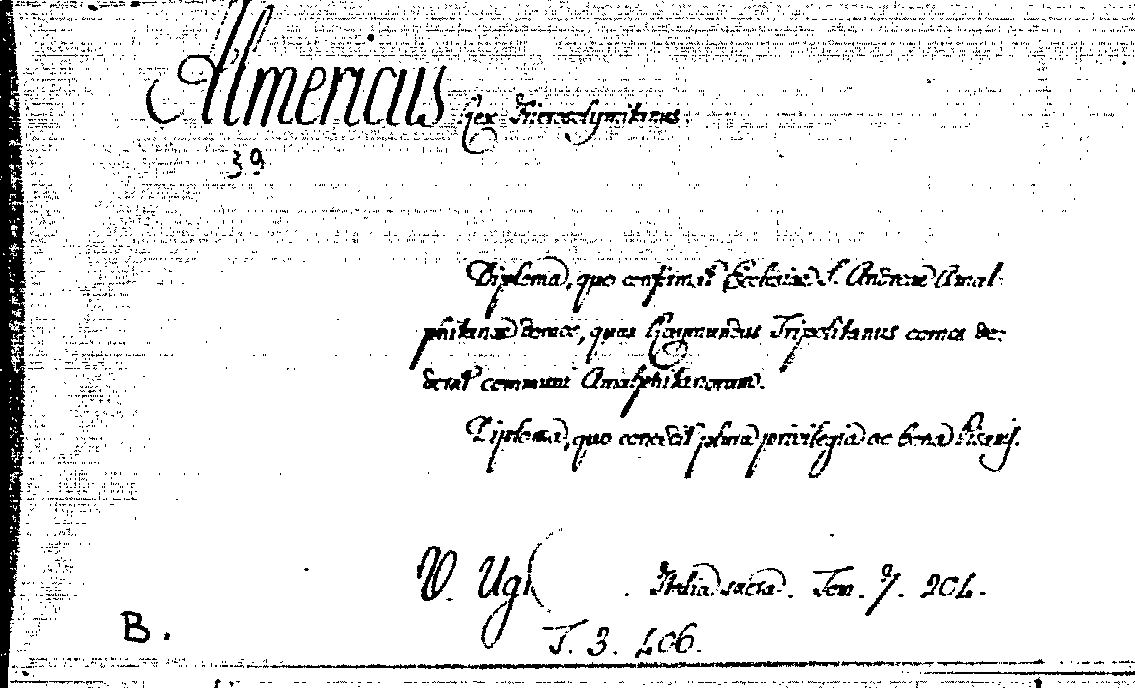 Almericus Rex Hierosolymitanus.
39
Diploma, quo confirmat Ecclesiae S. Andreae Amal-
phitanae domos, quas Raymundus Tripolitanus comes de-
derat communi Amalphitanorum.
Diploma, quo concedit plura privilegia ac bona Pisanis.
V. Ugh( . Italia sacra. Tom. 7. 204.
T. 3. 406.
B.